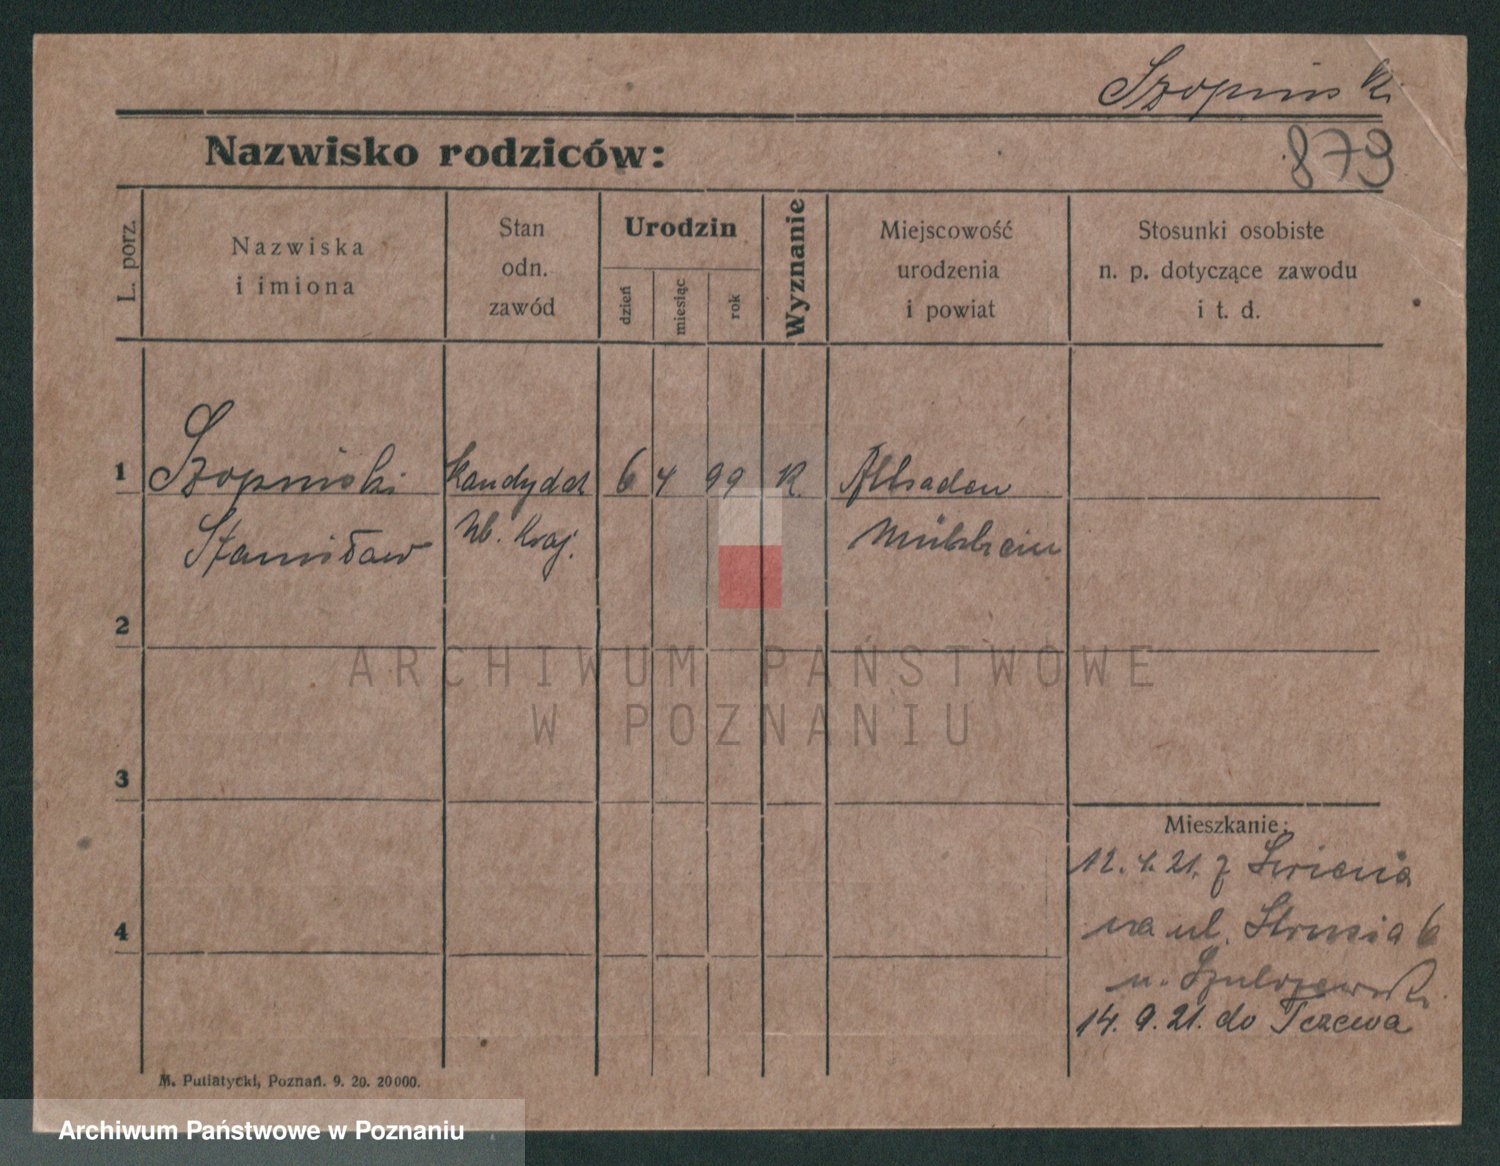 Szopinski
873
Nazwisko rodziców:
L. porz.
Nazwiska
i imiona
Stan
odn.
zawód
Urodzin
dzień
miesiąc
rok
Wyznanie
Miejscowość
urodzenia
i powiat
Stosunki osobiste
n. p. dotyczące zawodu
i t. d.
1
Szopiński kandydat 6 4 99 K.
Stanisław Ub. Kraj. Mühlheim
2
ARCHIWUM PAŃSTWOWE
W POZNANIU
3
Mieszkanie:
12. 4. 21. z
4
na ul. Strusia 6
u.
14. 9. 21. do Tczewa
M. Putiatycki, Poznań. 9. 20. 20000.
Archiwum Państwowe w Poznaniu